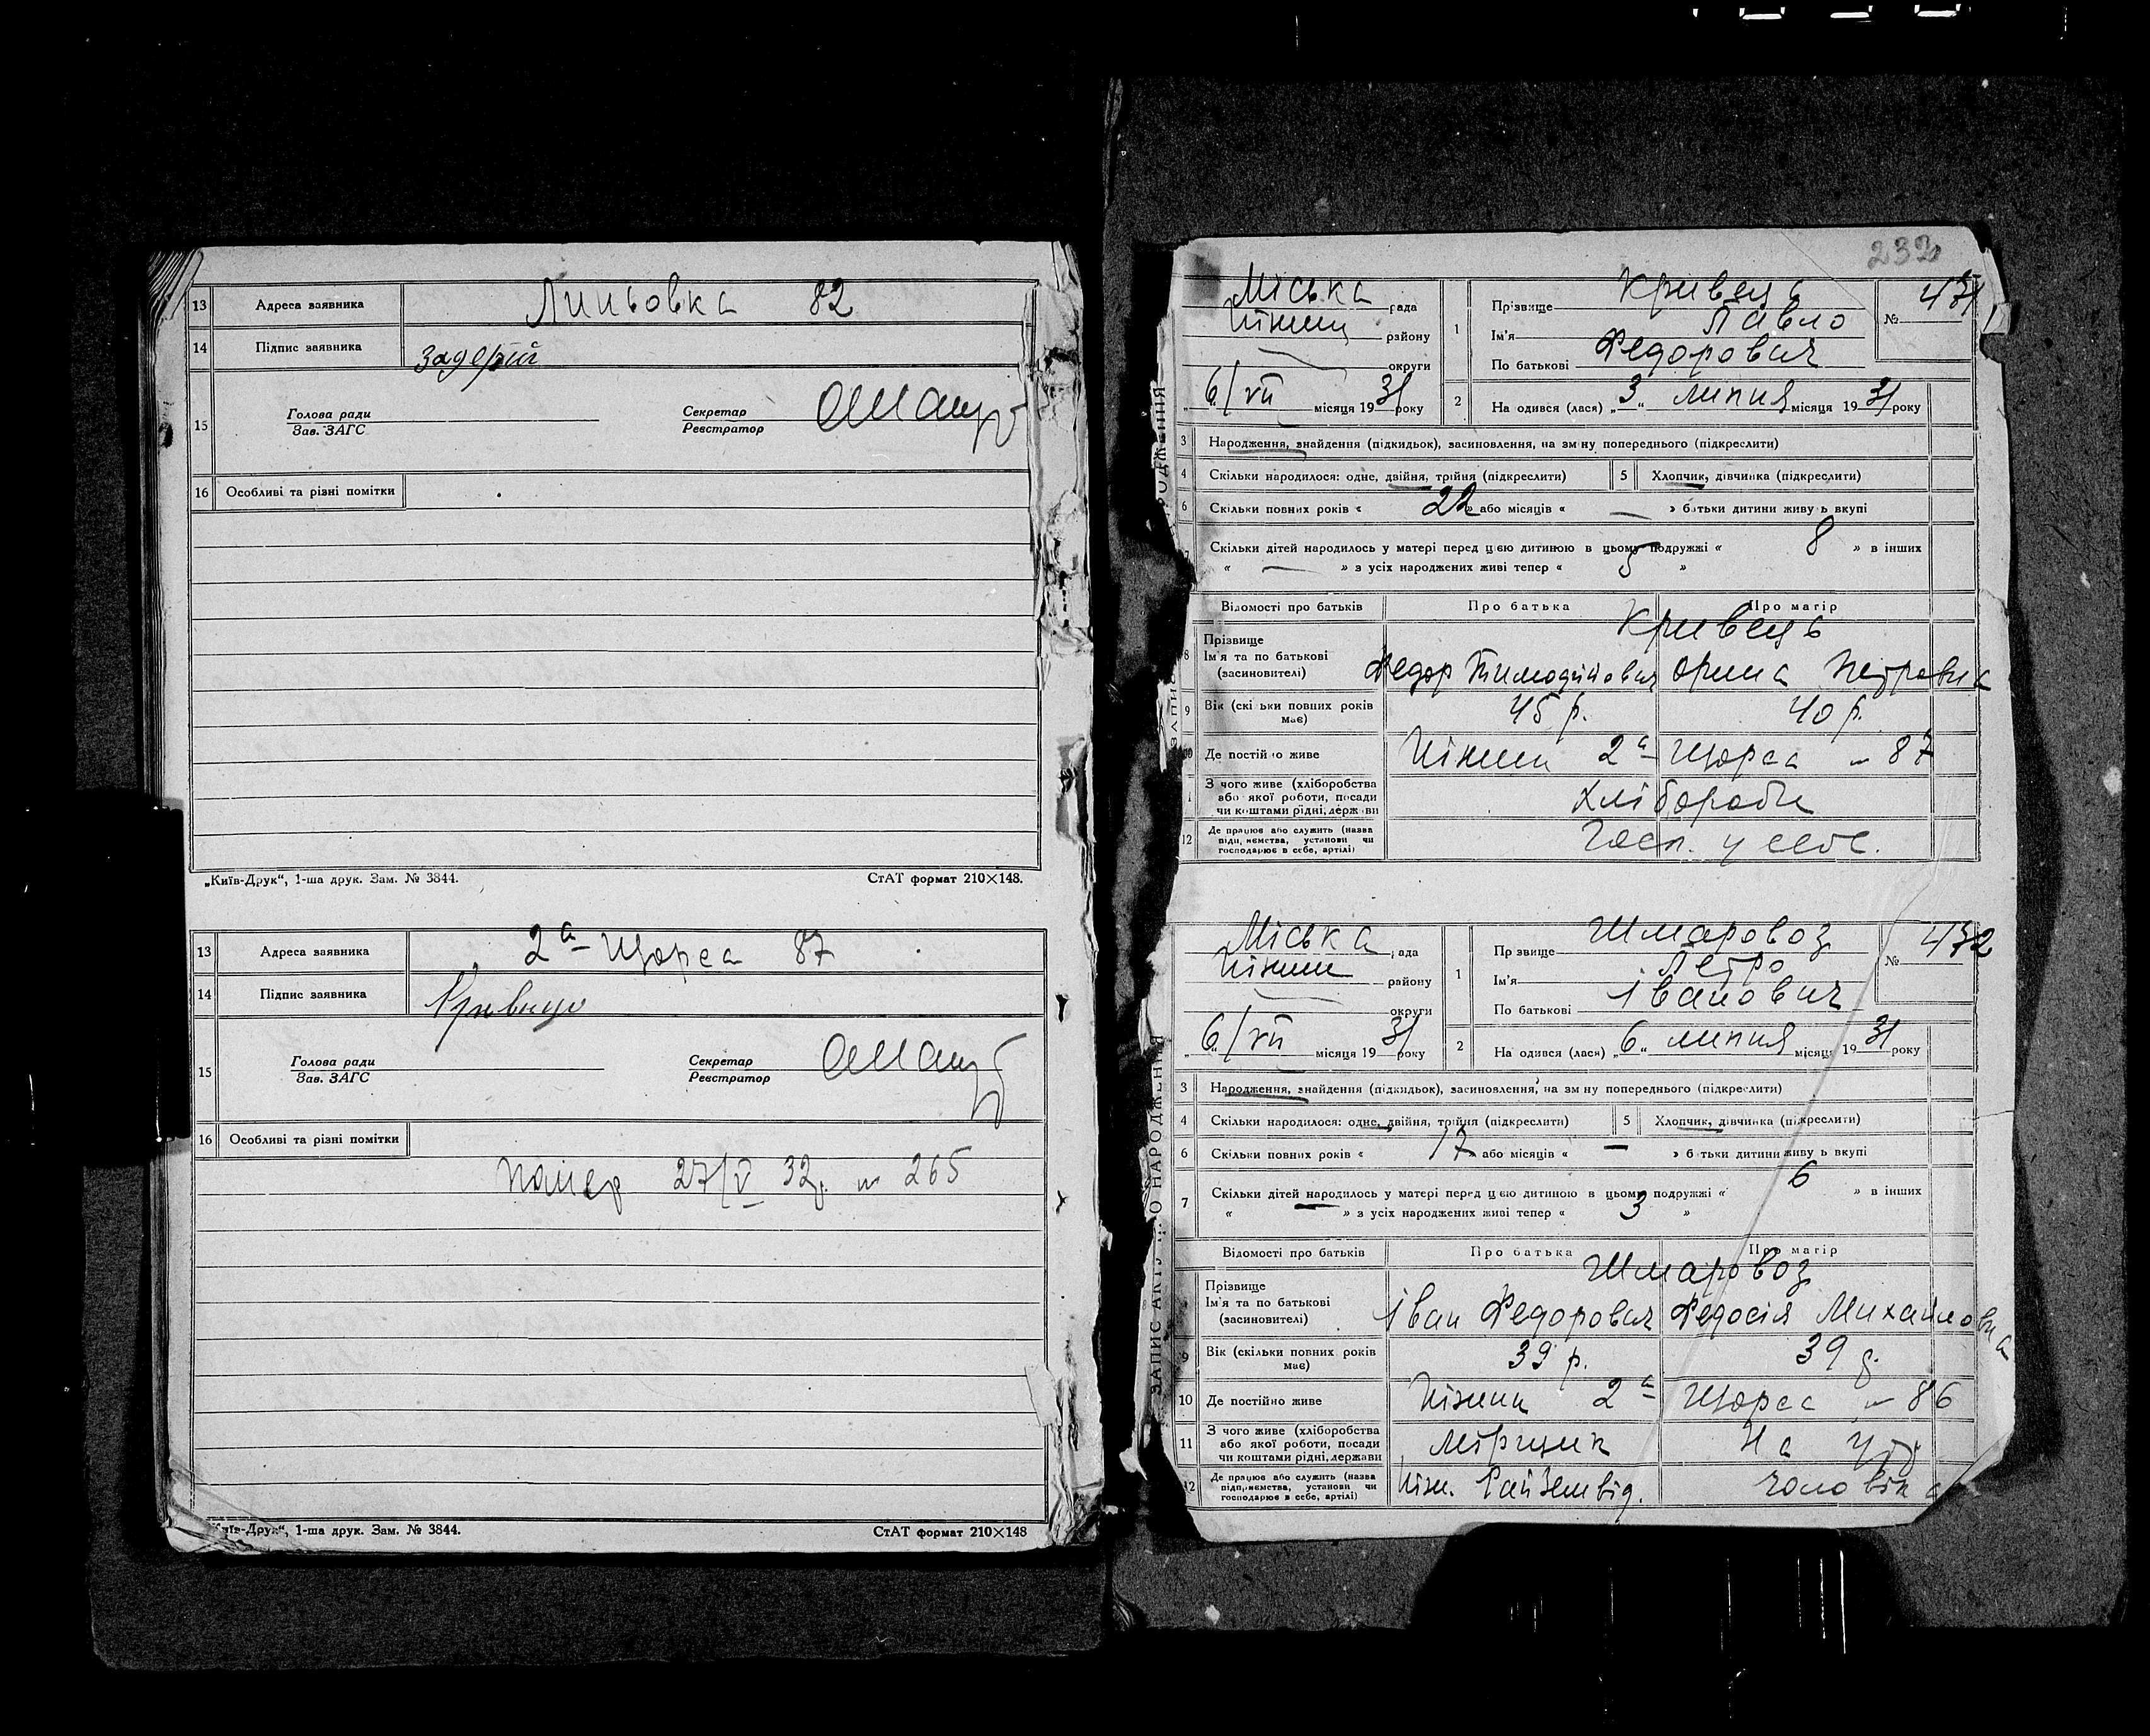 13 Адреса заявника Липьовка 82
14 Підпис заявника Задерій
15 Голова ради Секретар
Зав. ЗАГС Реєстратор
16 Особливі та різні помітки
„Київ-Друк“, 1-ша друк. Зам. № 3844. СтАТ формат 210×148.
13 Адреса заявника 2а Щорса 87
14 Підпис заявника
15 Голова ради Секретар
Зав. ЗАГС Реєстратор
16 Особливі та різні помітки
помер 27/V 32р. № 265
„Київ-Друк“, 1-ша друк. Зам. № 3844. СтАТ формат 210×148
232
Міська рада
Ніжин району
округи
„6/VII місяця 1931 року
1 Прізвище Кривець
Ім'я Павло
По батькові Федорович
№ 431
2 На одився (лася) „3“ липня місяця 1931 року
3 Народження, знайдення (підкидьок), засиновлення, на зміну попереднього (підкреслити)
4 Скільки народилося: одне, двійня, трійня (підкреслити) 5 Хлопчик, дівчинка (підкреслити)
6 Скільки повних років « 22 » або місяців « — » батьки дитини живуть вкупі
Скільки дітей народилось у матері перед цією дитиною в цьому подружжі « 8 » в інших
« — » з усіх народжених живі тепер « 5 »
Відомості про батьків Про батька Про матір
Кривець
8 Прізвище
Ім'я та по батькові
(засиновителі) Федор Тимофійович Орина Петровна
9 Вік (скільки повних років має) 45 р. 40 р.
10 Де постійно живе Ніжин 2а Щорса № 87
З чого живе (хліборобства
або якої роботи, посади
чи коштами рідні, держави Хлібороби
12 Де працює або служить (назва
підприємства, установи чи
господарює в себе, артілі) Госп. у себе.
Міська рада
Ніжин району
округи
„6/VII місяця 1931 року
1 Прізвище Шмаровоз
Ім'я Петро
По батькові Іванович
№ 432
2 На одився (лася) „6“ липня місяця 1931 року
3 Народження, знайдення (підкидьок), засиновлення, на зміну попереднього (підкреслити)
4 Скільки народилося: одне, двійня, трійня (підкреслити) 5 Хлопчик, дівчинка (підкреслити)
6 Скільки повних років « 17 » або місяців « — » батьки дитини живуть вкупі
7 Скільки дітей народилось у матері перед цією дитиною в цьому подружжі « 6 » в інших
« — » з усіх народжених живі тепер « 3 »
Відомості про батьків Про батька Про матір
Шмаровоз
Прізвище
Ім'я та по батькові
(засиновителі) Іван Федорович Федосія Михайловна
9 Вік (скільки повних років має) 39 р. 39 р.
10 Де постійно живе Ніжин 2а Щорса № 86
11 З чого живе (хліборобства
або якої роботи, посади
чи коштами рідні, держави Мірщик На утр
12 Де працює або служить (назва
підприємства, установи чи
господарює в себе, артілі) Ніж. Райземвід. чоловіка
ЗАПИС АКТУ ПРО НАРОДЖЕННЯ